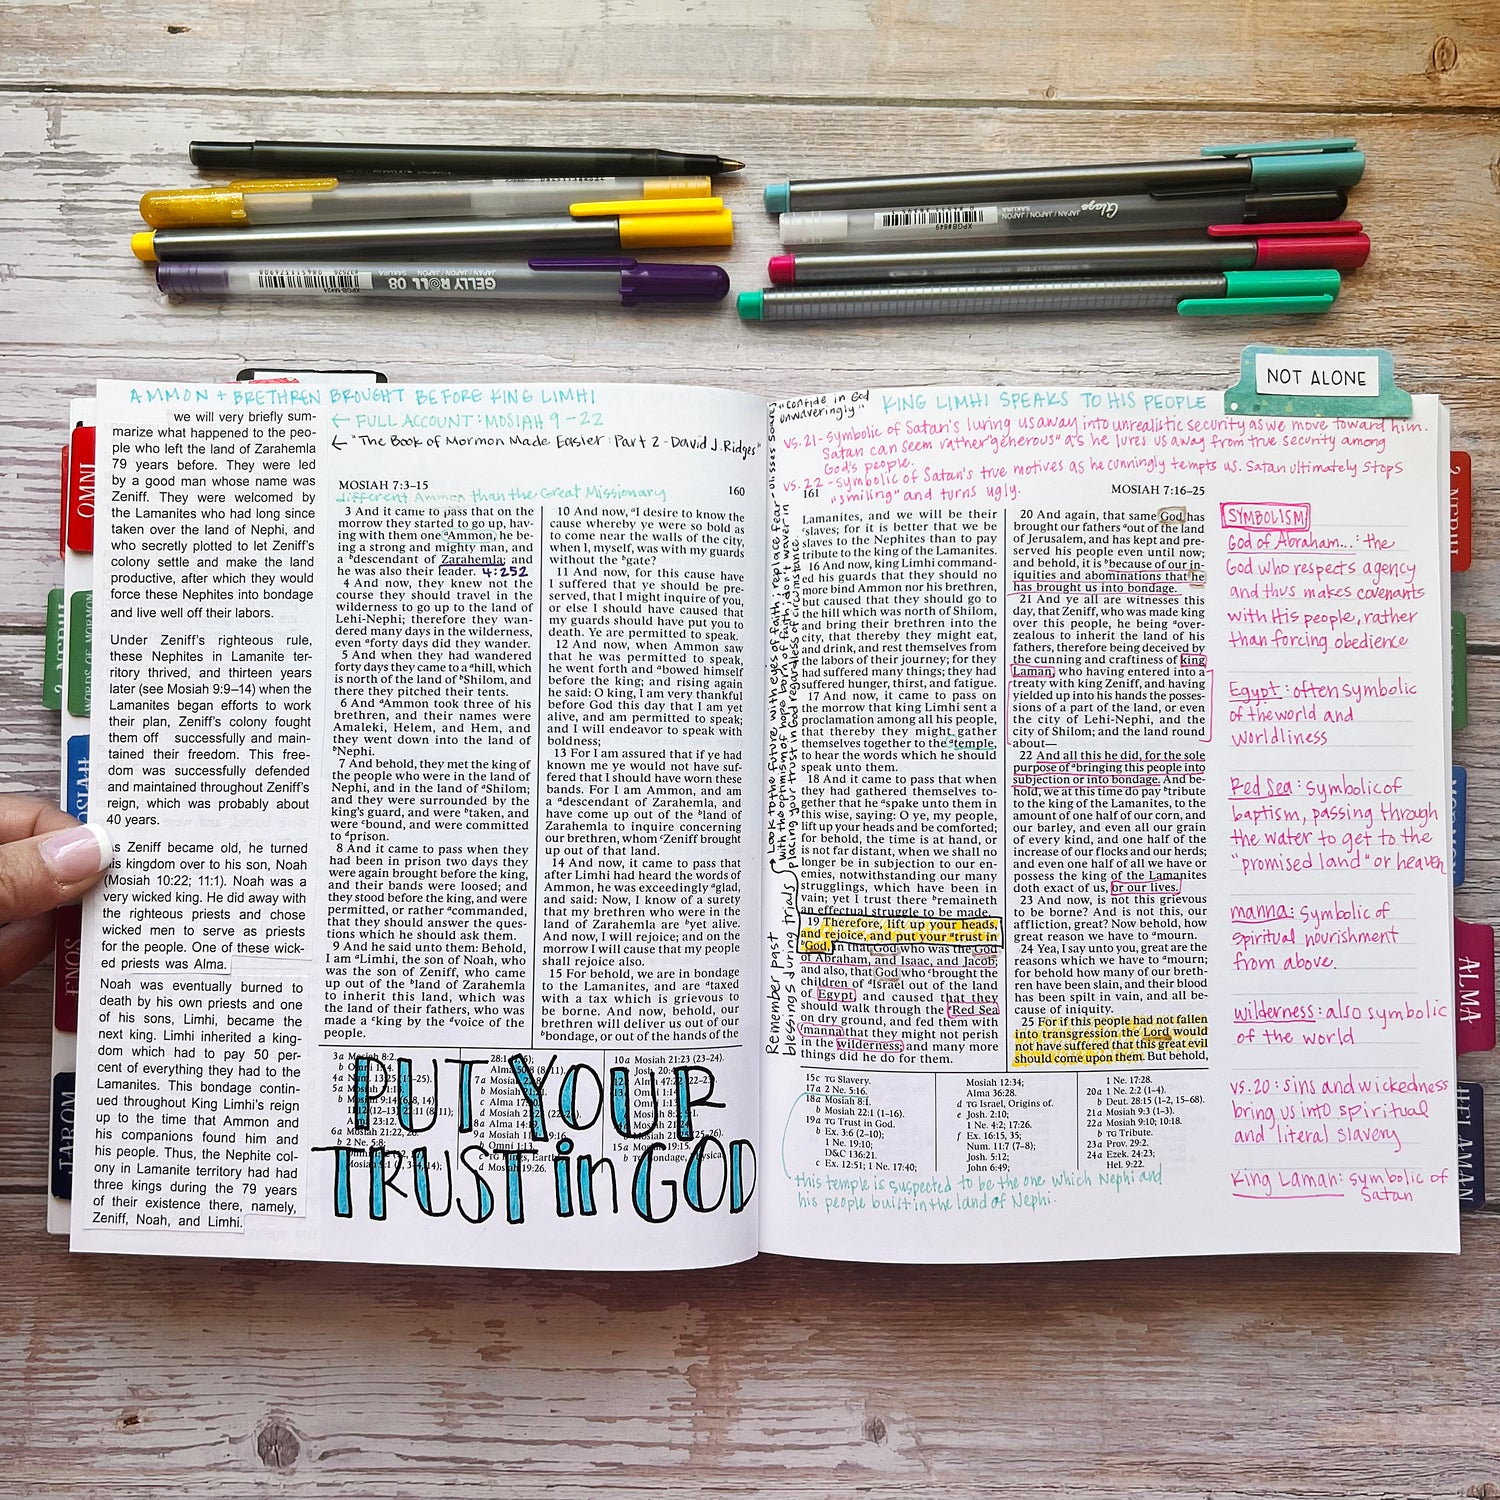 GELLY ROLL 08
SAKURA
JAPAN / JAPON
Glaze
SAKURA
JAPAN / JAPON
XPGB#849
NOT ALONE
OMNI
2 NEPHI
WORDS OF MORMON
MOSIAH
ENOS
JAROM
2 NEPHI
ALMA
HELAMAN
AMMON + BRETHREN BROUGHT BEFORE KING LIMHI
← FULL ACCOUNT: MOSIAH 9-22
← "The Book of Mormon Made Easier: Part 2 - David J. Ridges"
we will very briefly sum-
marize what happened to the peo-
ple who left the land of Zarahemla
79 years before. They were led
by a good man whose name was
Zeniff. They were welcomed by
the Lamanites who had long since
taken over the land of Nephi, and
who secretly plotted to let Zeniff's
colony settle and make the land
productive, after which they would
force these Nephites into bondage
and live well off their labors.
Under Zeniff's righteous rule,
these Nephites in Lamanite ter-
ritory thrived, and thirteen years
later (see Mosiah 9:9–14) when the
Lamanites began efforts to work
their plan, Zeniff's colony fought
them off successfully and main-
tained their freedom. This free-
dom was successfully defended
and maintained throughout Zeniff's
reign, which was probably about
40 years.
As Zeniff became old, he turned
his kingdom over to his son, Noah
(Mosiah 10:22; 11:1). Noah was a
very wicked king. He did away with
the righteous priests and chose
wicked men to serve as priests
for the people. One of these wick-
ed priests was Alma.
Noah was eventually burned to
death by his own priests and one
of his sons, Limhi, became the
next king. Limhi inherited a king-
dom which had to pay 50 per-
cent of everything they had to the
Lamanites. This bondage contin-
ued throughout King Limhi's reign
up to the time that Ammon and
his companions found him and
his people. Thus, the Nephite col-
ony in Lamanite territory had had
three kings during the 79 years
of their existence there, namely,
Zeniff, Noah, and Limhi.
MOSIAH 7:3–15
160
different Ammon than the Great Missionary
3 And it came to pass that on
the morrow they started to go up, hav-
ing with them one Ammon, he be-
ing a strong and mighty man, and
a bdescendant of Zarahemla; and
he was also their leader. 4:252
4 And now, they knew not the
course they should travel in the
wilderness to go up to the land of
Lehi-Nephi; therefore they wan-
dered many days in the wilderness,
even aforty days did they wander.
5 And when they had wandered
forty days they came to a ahill, which
is north of the land of bShilom, and
there they pitched their tents.
6 And aAmmon took three of his
brethren, and their names were
Amaleki, Helem, and Hem, and
they went down into the land of
bNephi.
7 And behold, they met the king of
the people who were in the land of
Nephi, and in the land of aShilom;
and they were surrounded by the
king's guard, and were btaken, and
were cbound, and were committed
to prison.
8 And it came to pass when they
had been in prison two days they
were again brought before the king,
and their bands were loosed; and
they stood before the king, and were
permitted, or rather acommanded,
that they should answer the ques-
tions which he should ask them.
9 And he said unto them: Behold,
I am aLimhi, the son of Noah, who
was the son of Zeniff, who came
up out of the bland of Zarahemla
to inherit this land, which was
the land of their fathers, who was
made a cking by the dvoice of the
people.
10 And now, aI desire to know the
cause whereby ye were so bold as
to come near the walls of the city,
when I, myself, was with my guards
without the bgate?
11 And now, for this cause have
I suffered that ye should be pre-
served, that I might inquire of you,
or else I should have caused that
my guards should have put you to
death. Ye are permitted to speak.
12 And now, when Ammon saw
that he was permitted to speak,
he went forth and abowed himself
before the king; and rising again
he said: O king, I am very thankful
before God this day that I am yet
alive, and am permitted to speak;
and I will endeavor to speak with
boldness;
13 For I am assured that if ye had
known me ye would not have suf-
fered that I should have worn these
bands. For I am Ammon, and am
a adescendant of Zarahemla, and
have come up out of the bland of
Zarahemla to inquire concerning
our brethren, whom cZeniff brought
up out of that land.
14 And now, it came to pass that
after Limhi had heard the words of
Ammon, he was exceedingly aglad,
and said: Now, I know of a surety
that my brethren who were in the
land of Zarahemla are byet alive.
And now, I will rejoice; and on the
morrow I will cause that my people
shall rejoice also.
15 For behold, we are in bondage
to the Lamanites, and are ataxed
with a tax which is grievous to
be borne. And now, behold, our
brethren will deliver us out of our
bbondage, or out of the hands of the
PUT YOUR
TRUST in GOD
"confide in God
unwaveringly"
Look to the future with eyes of faith; replace fear
with the optimism of hope born of faith; don't waver in
placing your trust in God regardless of circumstance
Remember past
blessings during trials
KING LIMHI SPEAKS TO HIS PEOPLE
vs. 21 - symbolic of Satan's luring us away into unrealistic security as we move toward him.
Satan can seem rather "generous" as he lures us away from true security among
God's people.
vs. 22 - symbolic of Satan's true motives as he cunningly tempts us. Satan ultimately stops
"smiling" and turns ugly.
161
MOSIAH 7:16–25
Lamanites, and we will be their
cslaves; for it is better that we be
slaves to the Nephites than to pay
tribute to the king of the Lamanites.
16 And now, king Limhi command-
ed his guards that they should no
more bind Ammon nor his brethren,
but caused that they should go to
the hill which was north of Shilom,
and bring their brethren into the
city, that thereby they might eat,
and drink, and rest themselves from
the labors of their journey; for they
had suffered many things; they had
suffered hunger, thirst, and fatigue.
17 And now, it came to pass on
the morrow that king Limhi sent a
proclamation among all his people,
that thereby they might gather
themselves together to the atemple,
to hear the words which he should
speak unto them.
18 And it came to pass that when
they had gathered themselves to-
gether that he aspake unto them in
this wise, saying: O ye, my people,
lift up your heads and be comforted;
for behold, the time is at hand, or
is not far distant, when we shall no
longer be in subjection to our en-
emies, notwithstanding our many
strugglings, which have been in
vain; yet I trust there bremaineth
an effectual struggle to be made.
19 Therefore, lift up your heads,
and rejoice, and put your atrust in
bGod, in that God who was the God
of Abraham, and Isaac, and Jacob;
and also, that God who cbrought the
children of dIsrael out of the land
of Egypt, and caused that they
should walk through the eRed Sea
on dry ground, and fed them with
fmanna that they might not perish
in the wilderness; and many more
things did he do for them.
20 And again, that same God has
brought our fathers aout of the land
of Jerusalem, and has kept and pre-
served his people even until now;
and behold, it is bbecause of our in-
iquities and abominations that he
has brought us into bondage.
21 And ye all are witnesses this
day, that Zeniff, who was made king
over this people, he being aover-
zealous to inherit the land of his
fathers, therefore being deceived by
the cunning and craftiness of king
Laman, who having entered into a
treaty with king Zeniff, and having
yielded up into his hands the posses-
sions of a part of the land, or even
the city of Lehi-Nephi, and the
city of Shilom; and the land round
about—
22 And all this he did, for the sole
purpose of abringing this people into
subjection or into bondage. And be-
hold, we at this time do pay btribute
to the king of the Lamanites, to the
amount of one half of our corn, and
our barley, and even all our grain
of every kind, and one half of the
increase of our flocks and our herds;
and even one half of all we have or
possess the king of the Lamanites
doth exact of us, or our lives.
23 And now, is not this grievous
to be borne? And is not this, our
affliction, great? Now behold, how
great reason we have to amourn.
24 Yea, I say unto you, great are the
reasons which we have to amourn;
for behold how many of our breth-
ren have been slain, and their blood
has been spilt in vain, and all be-
cause of iniquity.
25 For if this people had not fallen
into transgression the Lord would
not have suffered that this great evil
should come upon them. But behold,
15c TG Slavery.
17a 2 Ne. 5:16.
18a Mosiah 8:1.
b Mosiah 22:1 (1–16).
19a TG Trust in God.
b Ex. 3:6 (2–10);
1 Ne. 19:10;
D&C 136:21.
c Ex. 12:51; 1 Ne. 17:40;
Mosiah 12:34;
Alma 36:28.
d TG Israel, Origins of.
e Josh. 2:10;
1 Ne. 4:2; 17:26.
f Ex. 16:15, 35;
Num. 11:7 (7–8);
Josh. 5:12;
John 6:49;
1 Ne. 17:28.
20a 1 Ne. 2:2 (1–4).
b Deut. 28:15 (1–2, 15–68).
21a Mosiah 9:3 (1–3).
22a Mosiah 9:10; 10:18.
b TG Tribute.
23a Prov. 29:2.
24a Ezek. 24:23;
Hel. 9:22.
this temple is suspected to be the one which Nephi and
his people built in the land of Nephi.
SYMBOLISM
God of Abraham...: the
God who respects agency
and thus makes covenants
with His people, rather
than forcing obedience
Egypt: often symbolic
of the world and
worldliness
Red Sea: symbolic of
baptism, passing through
the water to get to the
"promised land" or heaven
manna: symbolic of
spiritual nourishment
from above.
wilderness: also symbolic
of the world
vs. 20: sins and wickedness
bring us into spiritual
and literal slavery
King Laman: symbolic of
Satan